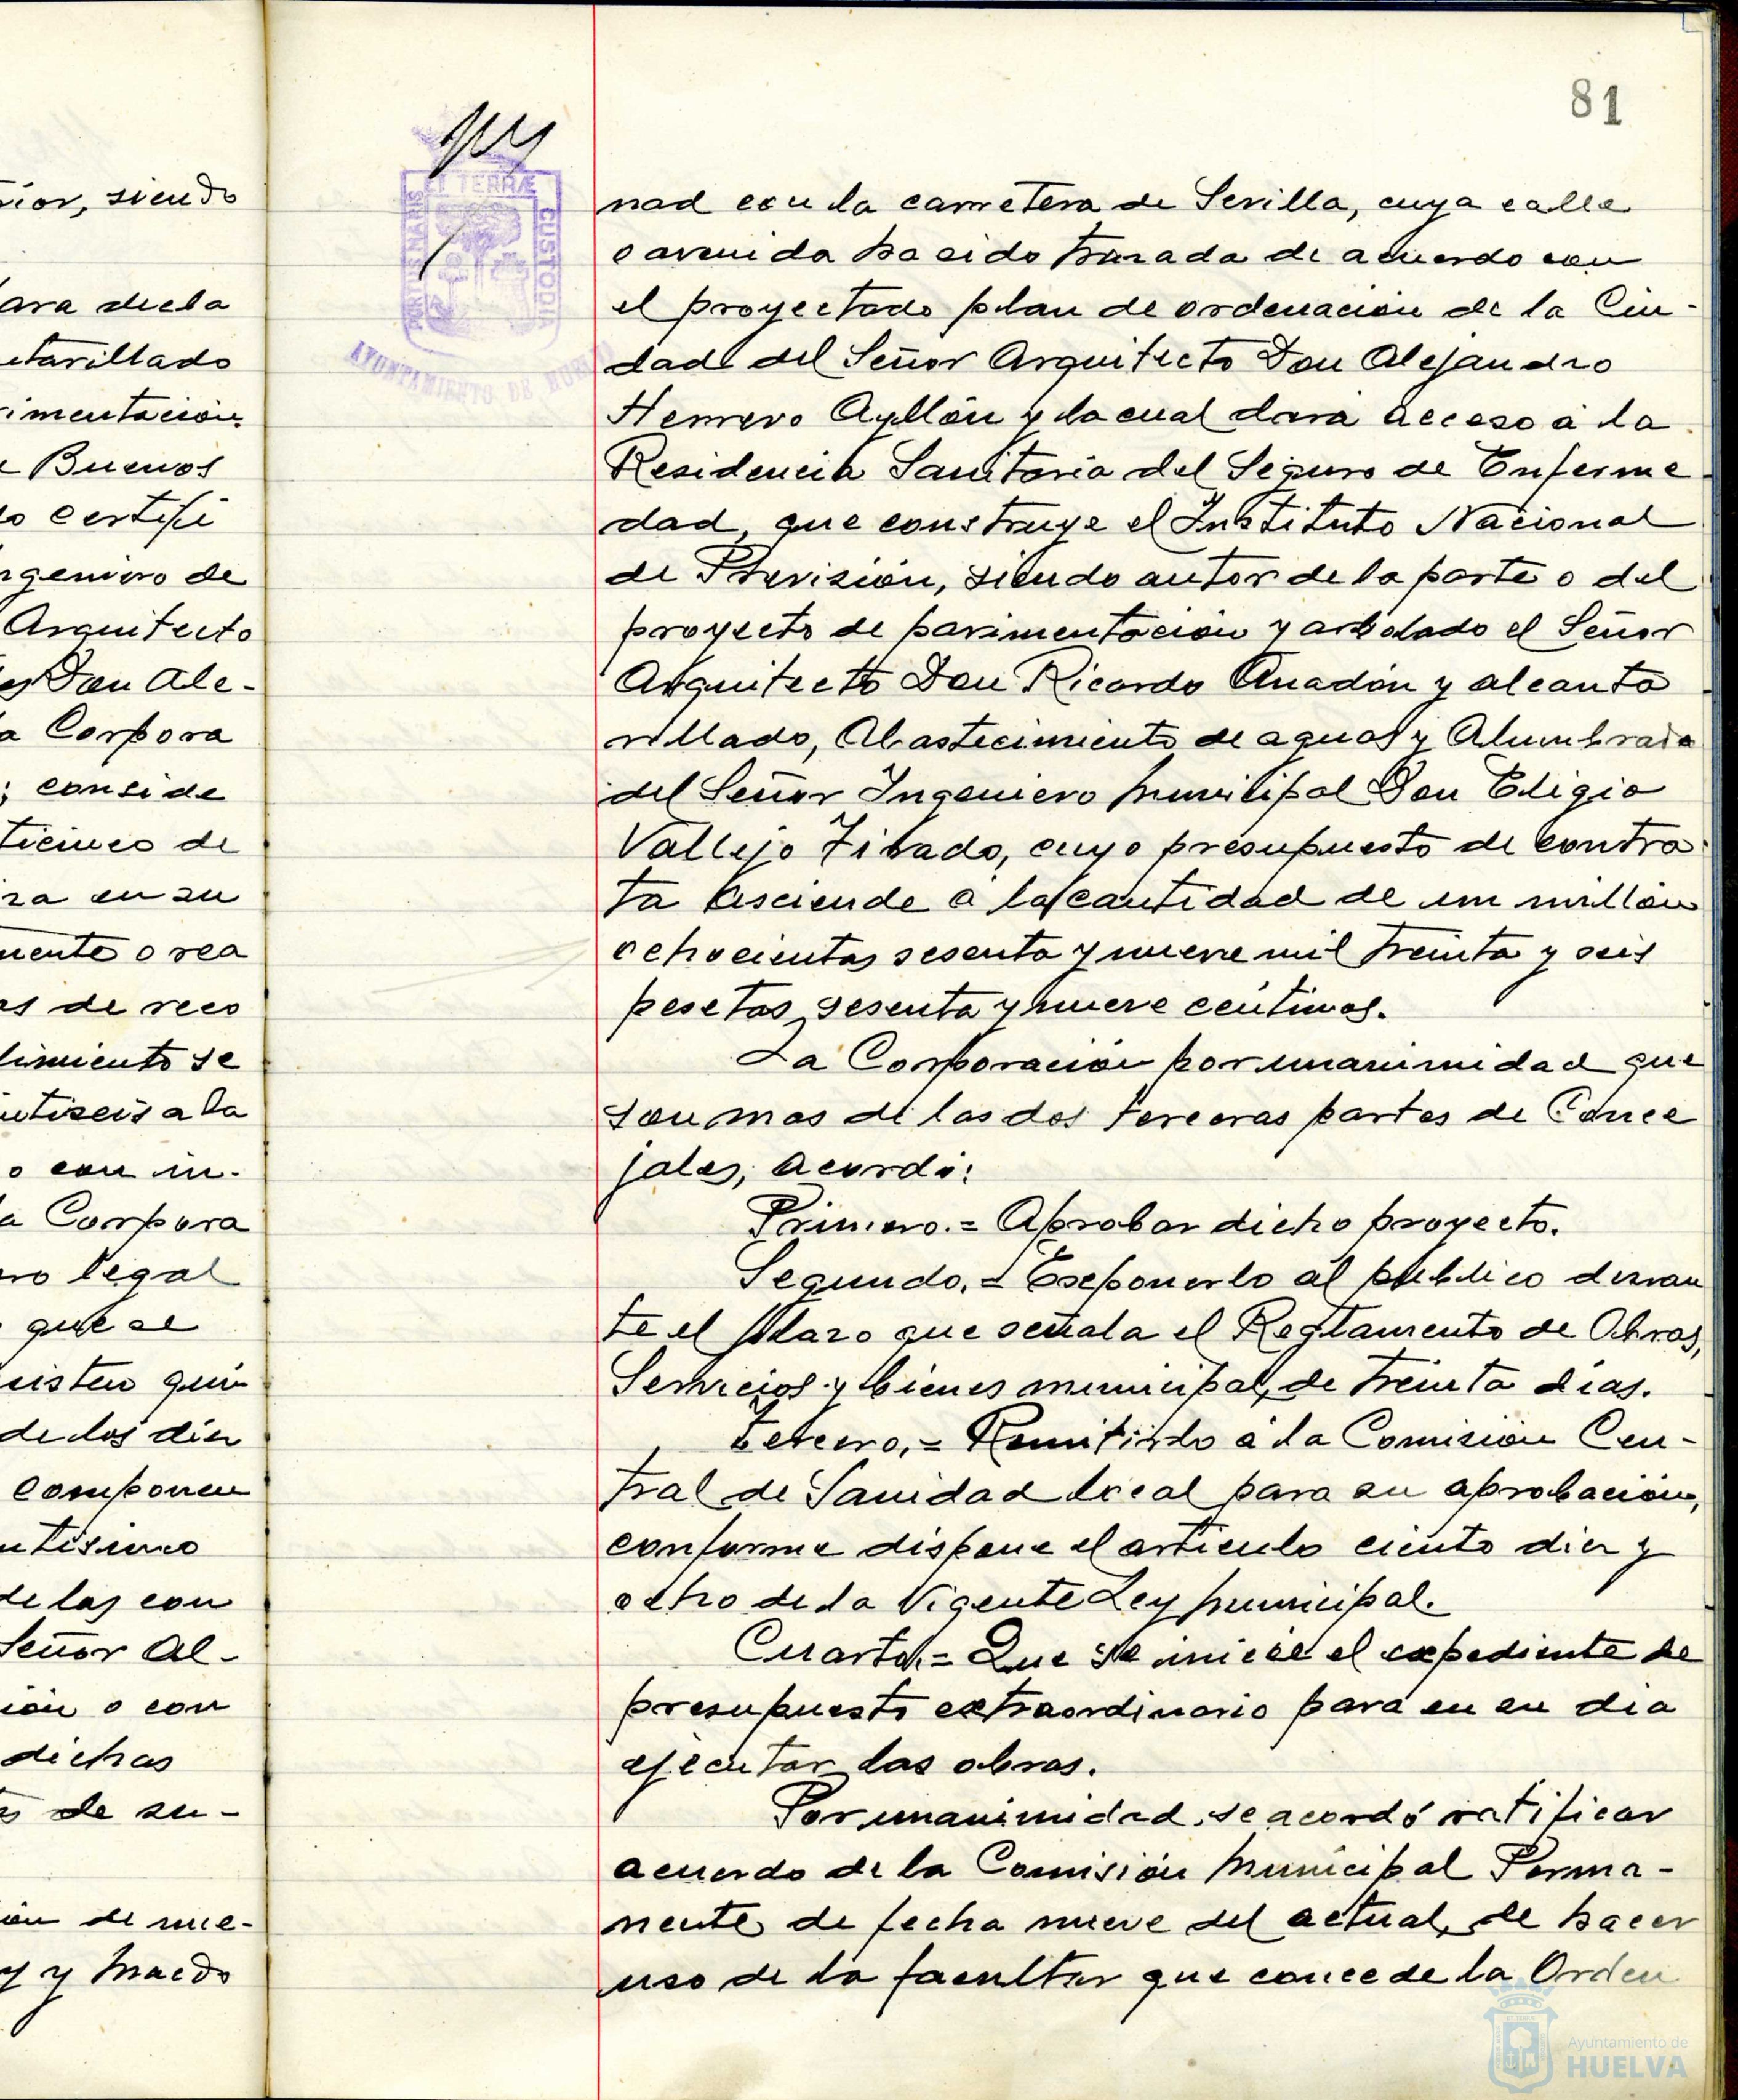 81
rior, siendo
ara dicha
ntarillado
imentación.
e Buenos
lo certifi
ngeniero de
Arquitecto
es Don Ale-
a Corpora
; conside
ticinco de
ra en su
mente o rea
as de reco
limiento se
ntiseis a la
o con in-
a Corpora
ro legal
que se
sisten quin
de los diez
componen
ntisinco
de las con
Señor Al-
ión o con
dichas
s de su-
ón de nue-
y y Macdo
ET TERRÆ
CUSTODIA
PORTUS MARIS
AYUNTAMIENTO DE HUELVA
nad con la carretera de Sevilla, cuya calle
o avenida ha sido trazada de acuerdo con
el proyectado plan de ordenación de la Ciu-
dad del Señor Arquitecto Don Alejandro
Herrero Ayllón y la cual dará acceso á la
Residencia Sanitaria del Seguro de Enferme
dad, que construye el Instituto Nacional
de Previsión, siendo autor de la parte o del
proyecto de pavimentación y arbolado el Señor
Arquitecto Don Ricardo Anadón y alcanta
rillado, Abastecimiento de aguas y Alumbrado
del Señor Ingeniero Municipal Don Eligio
Vallejo Tirado, cuyo presupuesto de contra
ta asciende a la cantidad de un millón
ochocientas sesenta y nueve mil treinta y seis
pesetas, sesenta y nueve céntimos.
La Corporación por unanimidad que
son mas de las dos terceras partes de Conce
jales, acordó:
Primero.= Aprobar dicho proyecto.
Segundo.= Esponerlo al publico duran
te el plazo que señala el Reglamento de Obras,
Servicios y bienes municipal, de treinta días.
Tercero,= Remitirlo á la Comisión Cen-
tral de Sanidad local para su aprobación,
conforme dispone el artículo ciento diez y
ocho de la Vigente Ley Municipal.
Cuarto.= Que se inicie el expediente de
presupuesto extraordinario para en su día
ejecutar las obras.
Por unanimidad, se acordó ratificar
acuerdo de la Comisión Municipal Perma-
nente de fecha nueve del actual, de hacer
uso de la facultar que concede la Orden
Ayuntamiento de
HUELVA